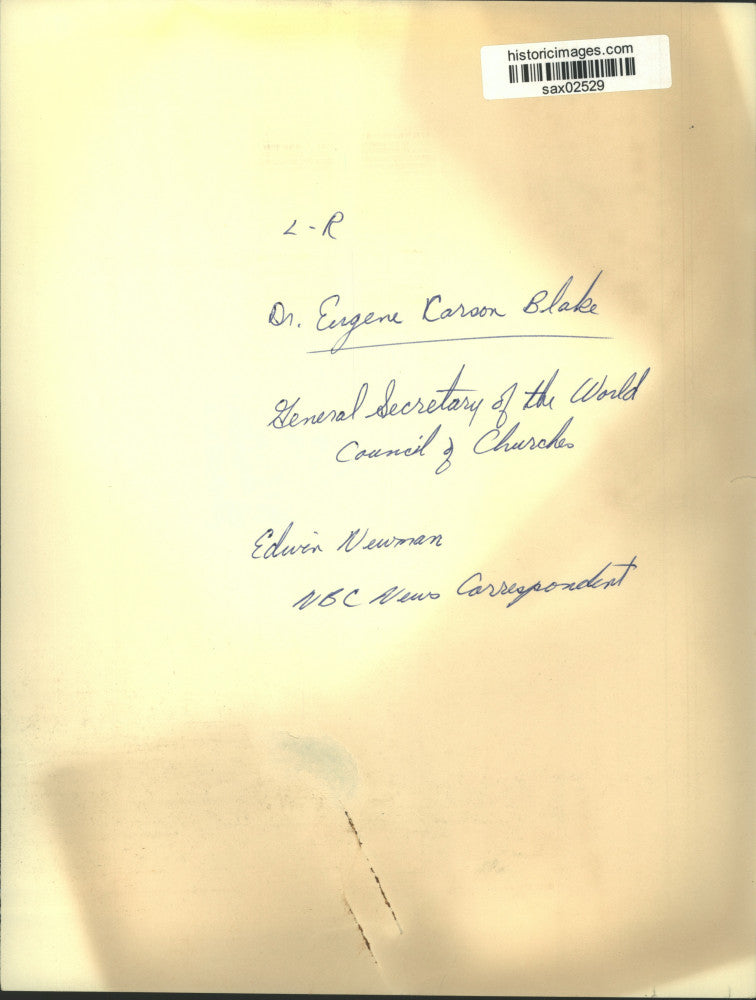 historicimages.com
sax02529
L-R
Dr. Eugene Carson Blake
General Secretary of the World
Council of Churches
Edwin Newman
NBC News Correspondent